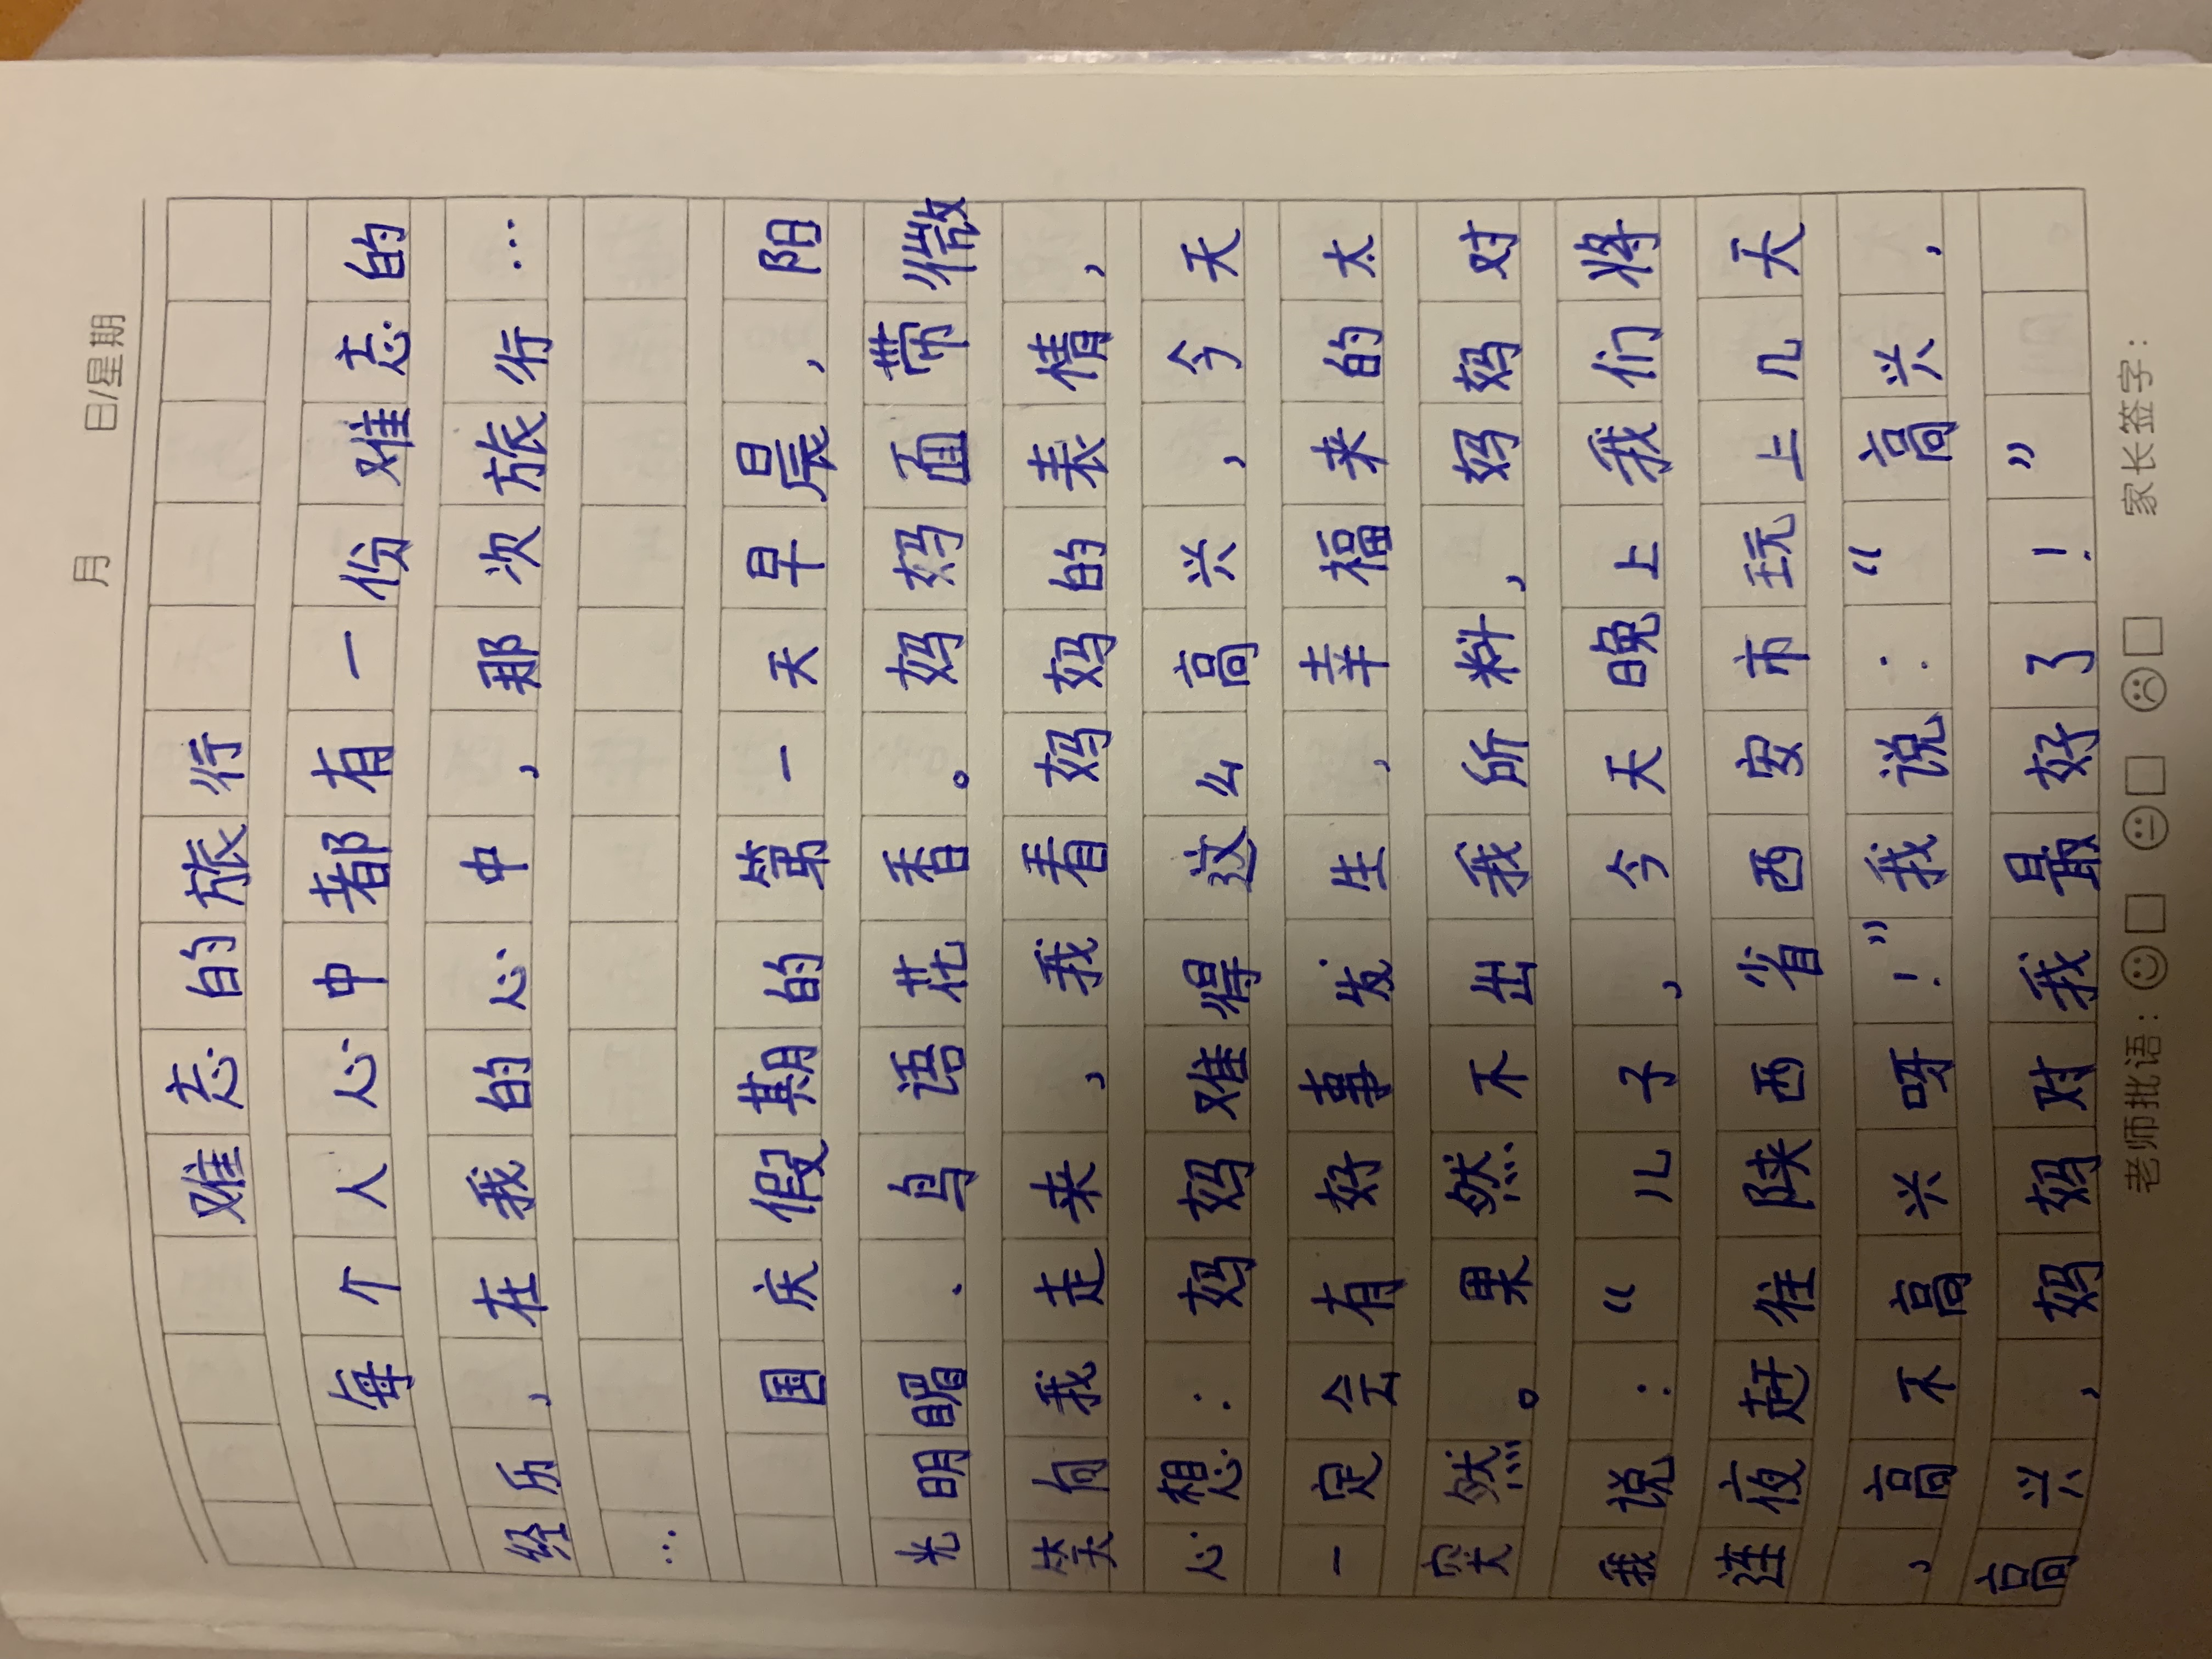 月 日/星期
难忘的旅行
每个人心中都有一份难忘的
经历,在我的心中,那次旅行…
…
国庆假期的第一天早晨,阳
光明媚、鸟语花香。妈妈面带微
笑向我走来,我看妈妈的表情,
心想:妈妈难得这么高兴,今天
一定会有好事发生,幸福来的太
突然。果然不出我所料,妈妈对
我说:“儿子,今天晚上我们将
连夜赶往陕西省西安市玩上几天
,高不高兴呀!”我说:“高兴,
高兴,妈妈对我最好了!”
老师批语: 家长签字: